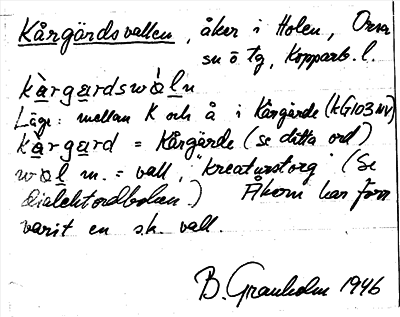 Kårgärdsvallen, åker i Holen, Orsa
sn ö tg, Kopparb. l.
kàrgardswàln
Läge: mellan K och å i Kårgärde (kG103NV)
kàrgard = Kårgärde (se ditta ord)
wal m. = vall, "kreaturstorg" (Se
Dialektordboken.) Åkern har förr
varit en s.k. vall.
B. Granholm 1946